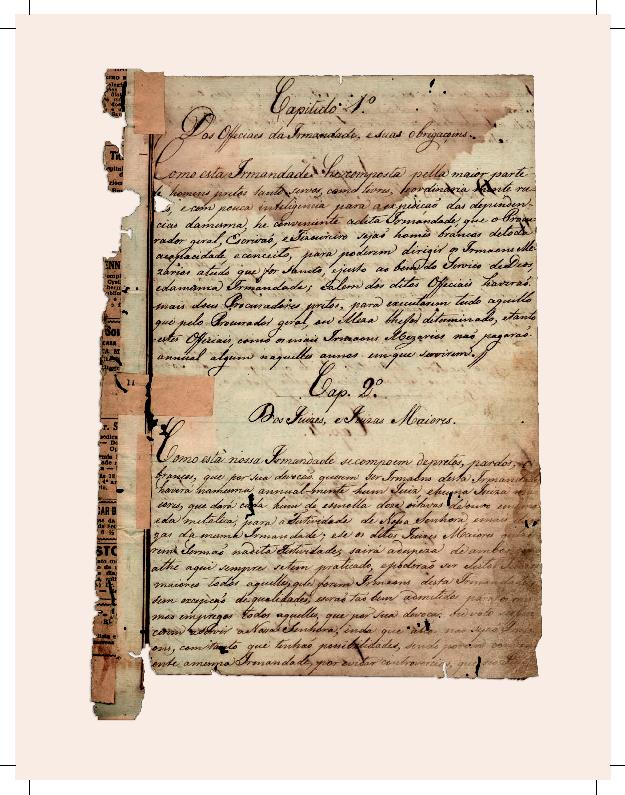 Capitulo 1º
Dos Officiaes da Irmandade, e suas obrigaçoens.
Como esta Irmandade he composta pella maior parte
de homens pretos tanto servos, como livres, e ordinaria mente ru-
s, e com pouca inteligencia para a expedicaõ das dependen-
cias damesma, he conveniente adita Irmandade, que o Procu-
rador geral, Escrivaõ, e Tizoureiro sejaõ homẽs brancos detoda
acapacidade econceito, para poderem dirigir os Irmaons Me-
zarios atudo que for Santo, ejusto ao bem do Serviço deDeos,
edamesma Irmandade; ealem dos ditos Officiais haveraõ
mais dous Procuradores pretos, para executarem tudo aquillo
que pelo Procurador geral, ou Meza lhesfor determinado, etanto
estes Officiais, como os mais Irmaons Mezarios naõ pagaraõ
annual algum naquelles annos em que servirem.
Cap. 2º
Dos Juizes, e Juizas Maiores.
Como está nossa Irmandade secompoem depretos, pardos, e
brancos, que por sua devocaõ querem ser Irmaõs desta Irmandade
haverá namesma annual-mente hum Juiz, ehuma Juiza m
iores, que dará cada hum de esmolla doze oitavas de ouro em
eda metalica, para a Festividade de Nossa Senhora
gas da mesma Irmandade, ese os ditos Juizes Maiores
rem Sermaõ nadita Festividade, sairá adespeza de ambos
athe aqui sempre setem praticado, epoderaõ ser eleitos
maiores todos aquelles, que forem Irmaons desta Irmandade
sem excepçaõ de qualidades, eseraõ taõ bem admetidos para o me
mos empregos todos aquelles, que por sua devoçaõ
rem servir aMesma Senhora, inda que naõ sejaõ Irm
ons, com tanto que tenhaõ possibilidades, sendo porem con
ente amesma Irmandade, por evitar controversias, que
11